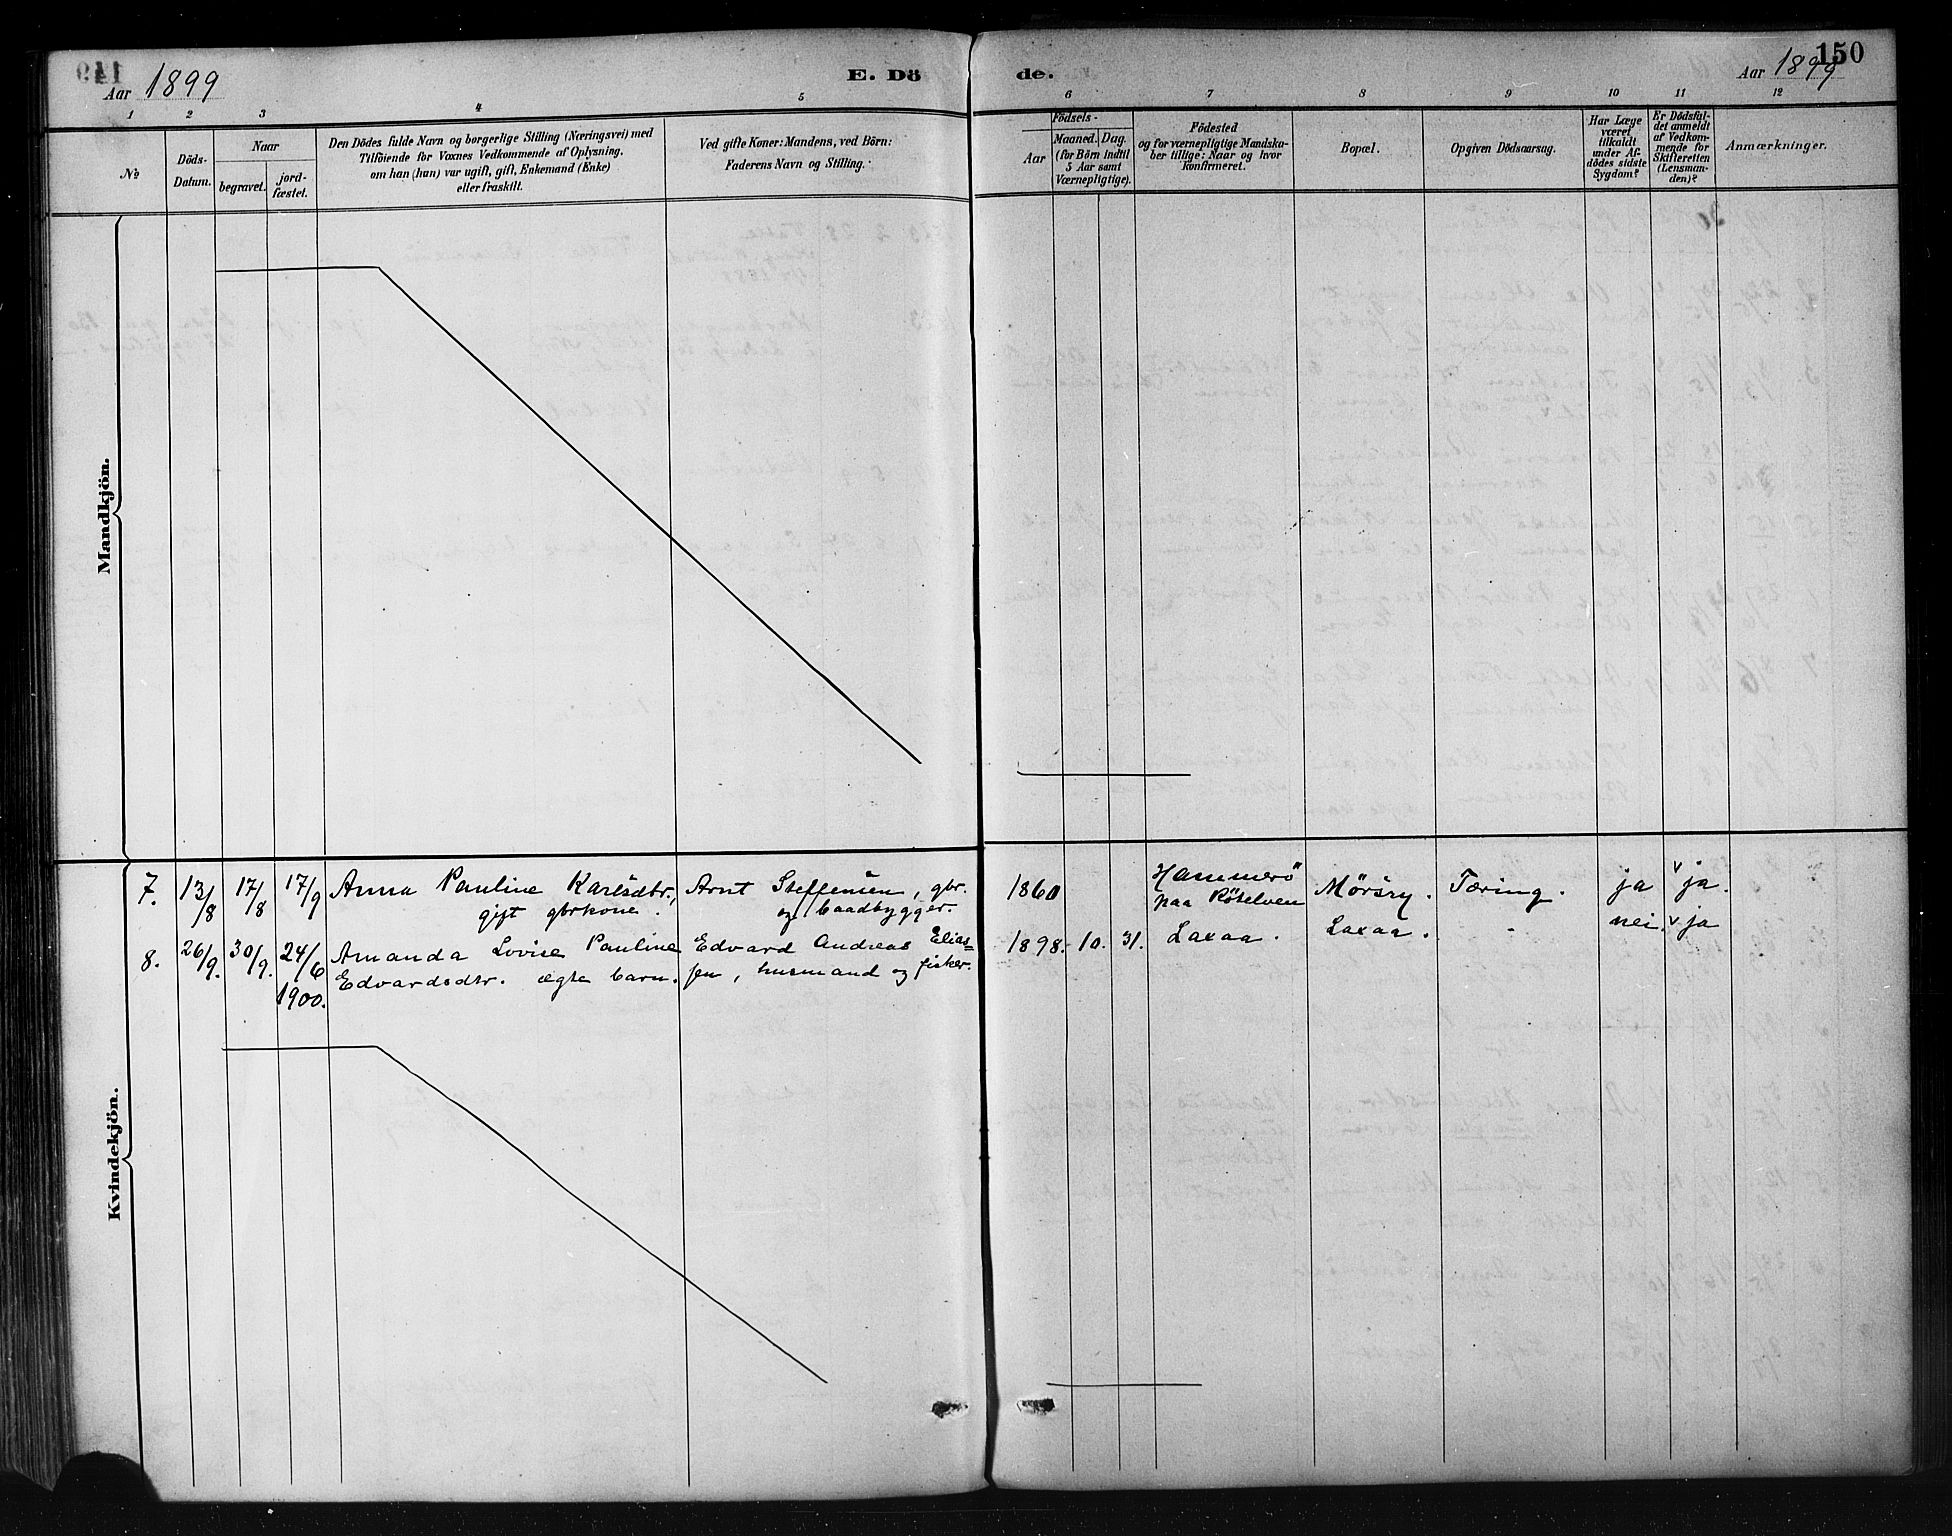 149
Aar 1899
E. Dö
de.
Aar 1899
150
1
2
3
4
5
6
7
8
9
10
11
12
№
Döds-
Datum.
Naar
begravet.
jord-
fæstet.
Den Dödes fulde Navn og borgerlige Stilling (Næringsvei) med
Tilföiende for Voxnes Vedkommende af Oplysning,
om han (hun) var ugift, gift, Enkemand (Enke)
eller fraskilt.
Ved gifte Koner: Mandens, ved Börn:
Faderens Navn og Stilling.
Födsels-
Aar
Maaned.
Dag.
(for Börn indtil
5 Aar samt
Værnepligtige).
Födested
og for værnepligtige Mandska-
ber tillige: Naar og hvor
konfirmeret.
Bopæl.
Opgiven Dödsaarsag.
Har Læge
været
tilkaldt
under Af-
dödes sidste
Sygdom?
Er Dödsfal-
det anmeldt
af Vedkom-
mende for
Skifteretten
(Lensman-
den)?
Anmærkninger.
Mandkjön.
Kvindekjön.
7. 13/8 17/8 17/9 Anna Pauline Karlsdtr., gift gbrkone. Arnt Steffensen, gbr. og baadbygger. 1860 Hammerö paa Rötelven Mörsry. Tæring. ja v ja.
8. 26/9. 30/9. 24/6 1900. Amanda Lovise Pauline Edvardsdtr. ægte barn. Edvard Andreas Elias=sen, husmand og fisker. 1898. 10. 31. Laxaa. Laxaa. - nei. v ja